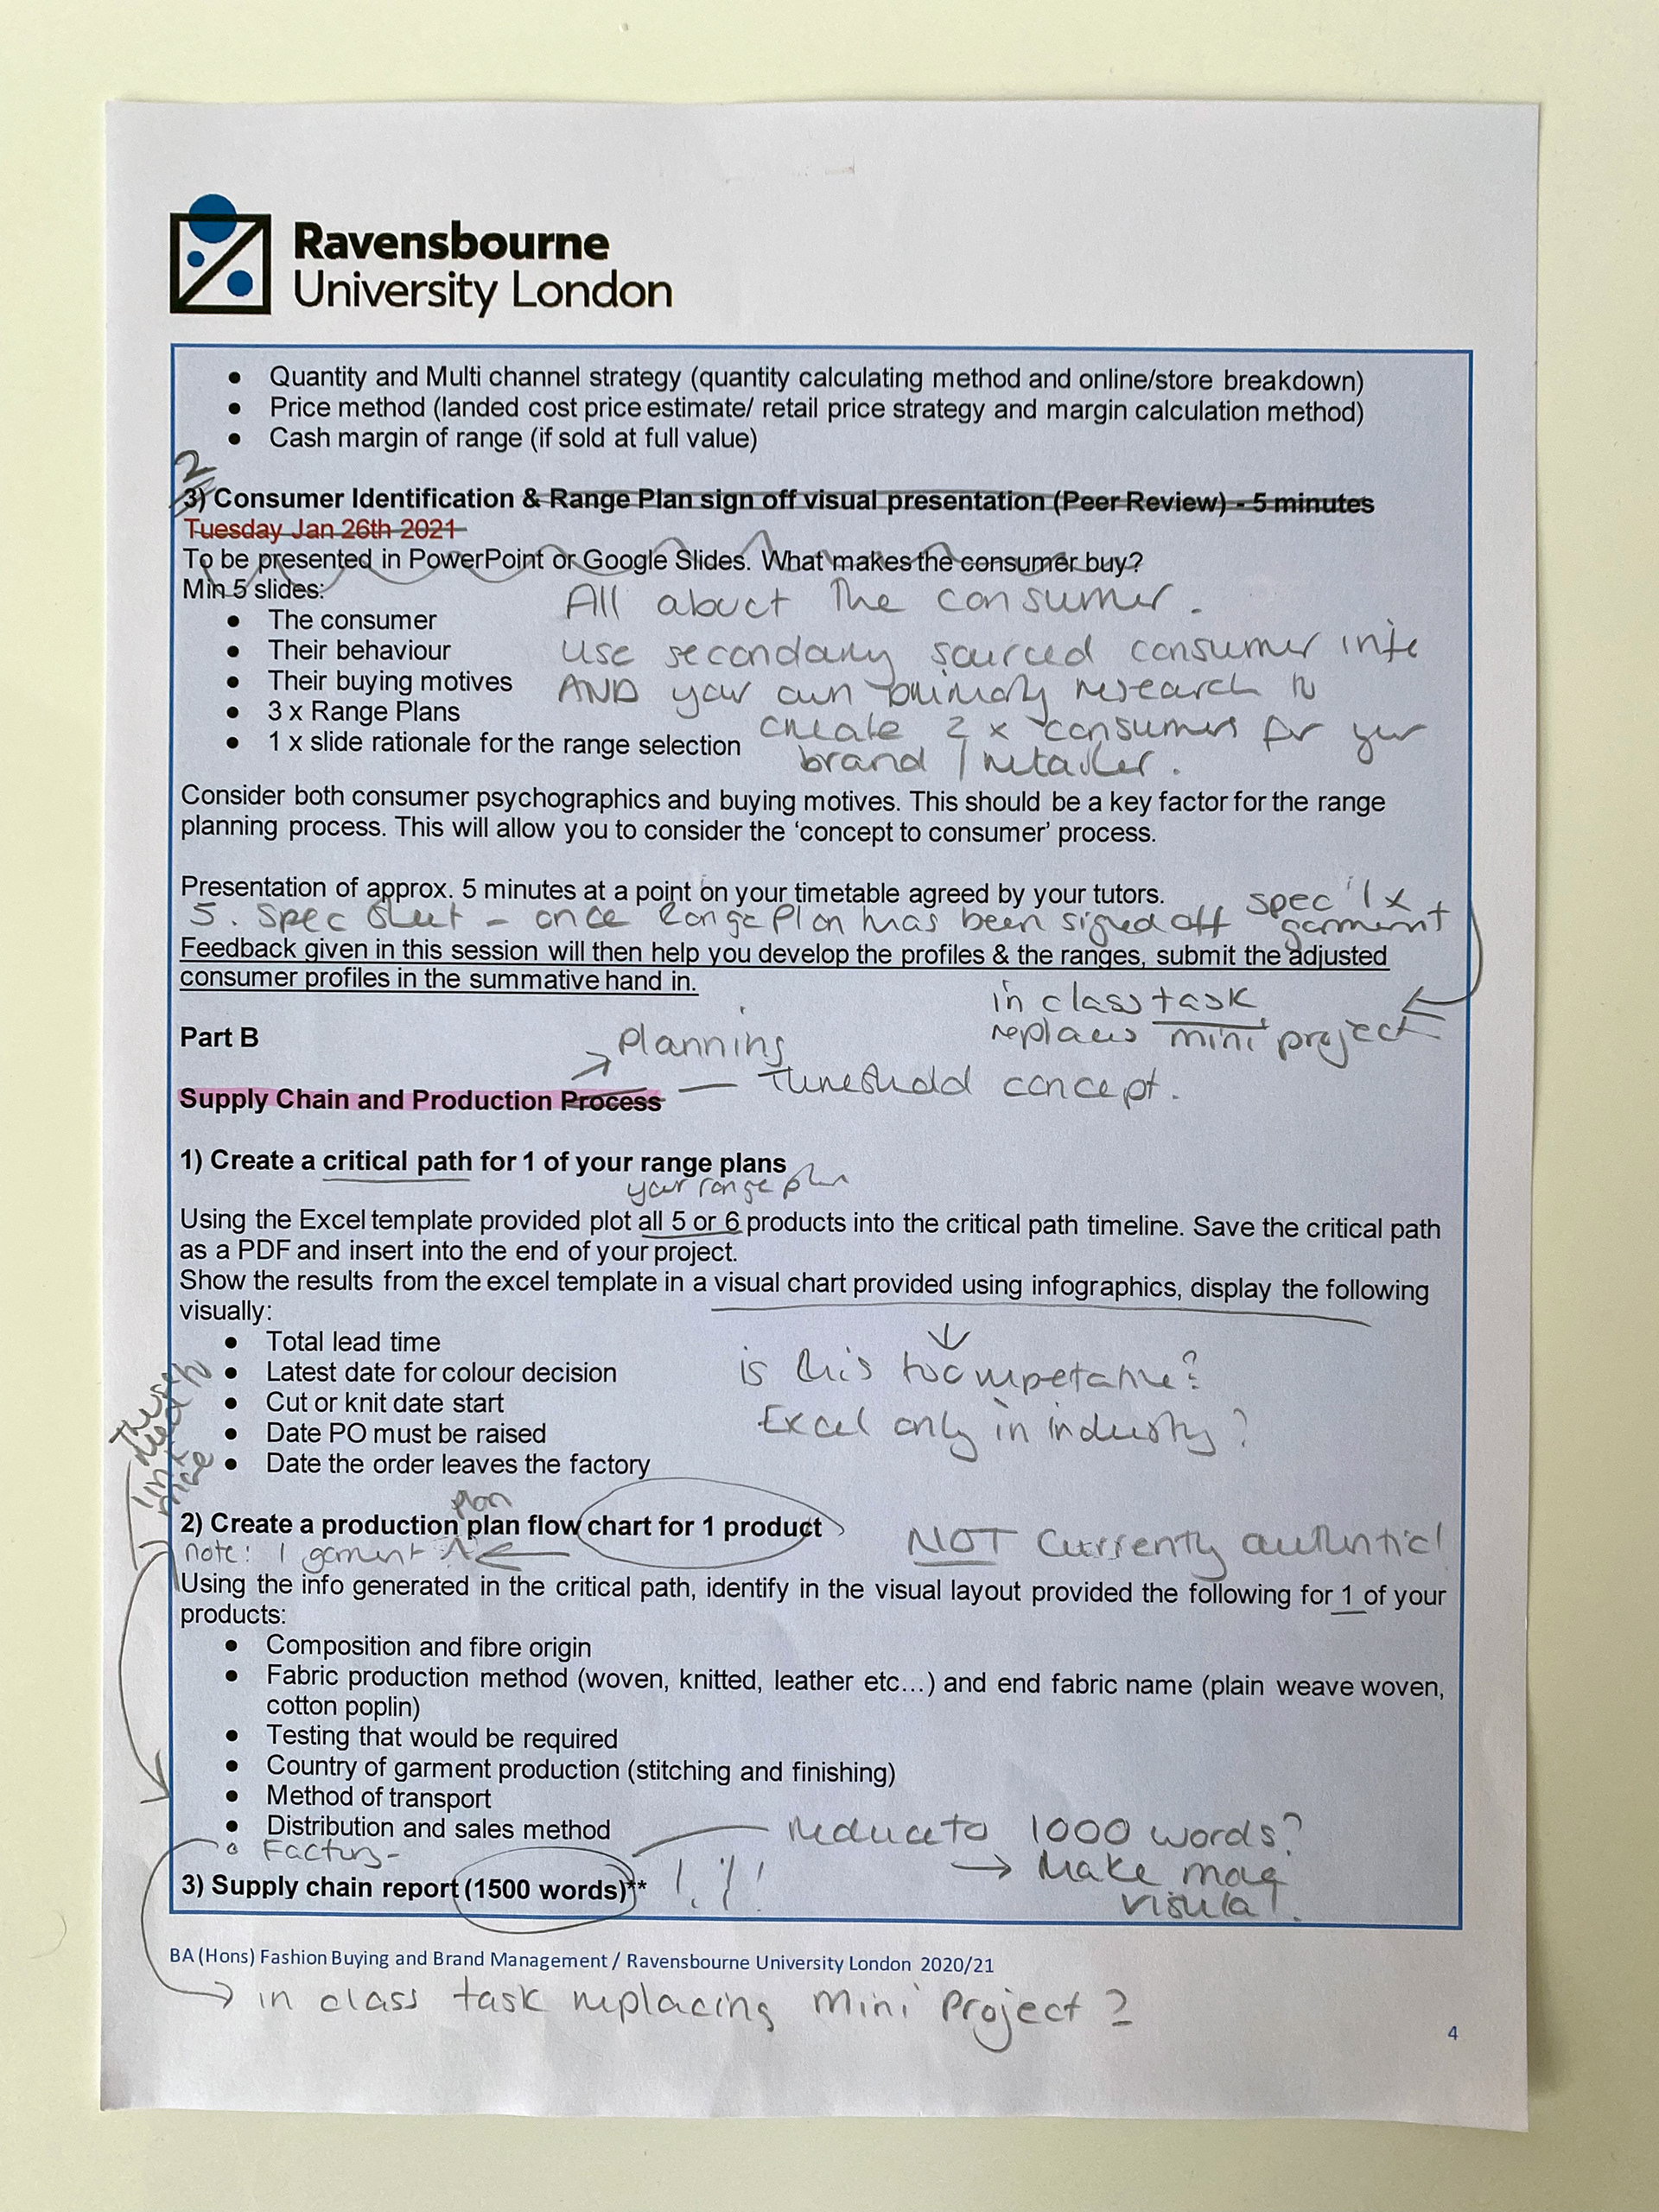 Ravensbourne
University London
• Quantity and Multi channel strategy (quantity calculating method and online/store breakdown)
• Price method (landed cost price estimate/ retail price strategy and margin calculation method)
• Cash margin of range (if sold at full value)
2
3) Consumer Identification & Range Plan sign off visual presentation (Peer Review) - 5 minutes
Tuesday Jan 26th 2021
To be presented in PowerPoint or Google Slides. What makes the consumer buy?
Min 5 slides:
All about the consumer.
• The consumer
• Their behaviour
use secondary sourced consumer info
• Their buying motives
AND your own primary research to
• 3 x Range Plans
create 2 x consumers for your
• 1 x slide rationale for the range selection
brand / retailer.
Consider both consumer psychographics and buying motives. This should be a key factor for the range
planning process. This will allow you to consider the ‘concept to consumer’ process.
Presentation of approx. 5 minutes at a point on your timetable agreed by your tutors.
5. Spec Sheet - once Range Plan has been signed off spec 1 x
garment
Feedback given in this session will then help you develop the profiles & the ranges, submit the adjusted
consumer profiles in the summative hand in.
in class task
replaces mini project
Part B
Planning
Supply Chain and Production Process — Threshold concept.
1) Create a critical path for 1 of your range plans
your range plan
Using the Excel template provided plot all 5 or 6 products into the critical path timeline. Save the critical path
as a PDF and insert into the end of your project.
Show the results from the excel template in a visual chart provided using infographics, display the following
visually:
• Total lead time
• Latest date for colour decision
is this too
• Cut or knit date start
Excel only in industry?
• Date PO must be raised
• Date the order leaves the factory
these need to
plan
2) Create a production plan flow chart for 1 product
note: 1 garment
NOT currently authentic!
Using the info generated in the critical path, identify in the visual layout provided the following for 1 of your
products:
• Composition and fibre origin
• Fabric production method (woven, knitted, leather etc…) and end fabric name (plain weave woven,
cotton poplin)
• Testing that would be required
• Country of garment production (stitching and finishing)
• Method of transport
• Distribution and sales method
reduce to 1000 words?
3) Supply chain report (1500 words)**
→ Make
BA (Hons) Fashion Buying and Brand Management / Ravensbourne University London 2020/21
→ in class task replacing mini project?
4